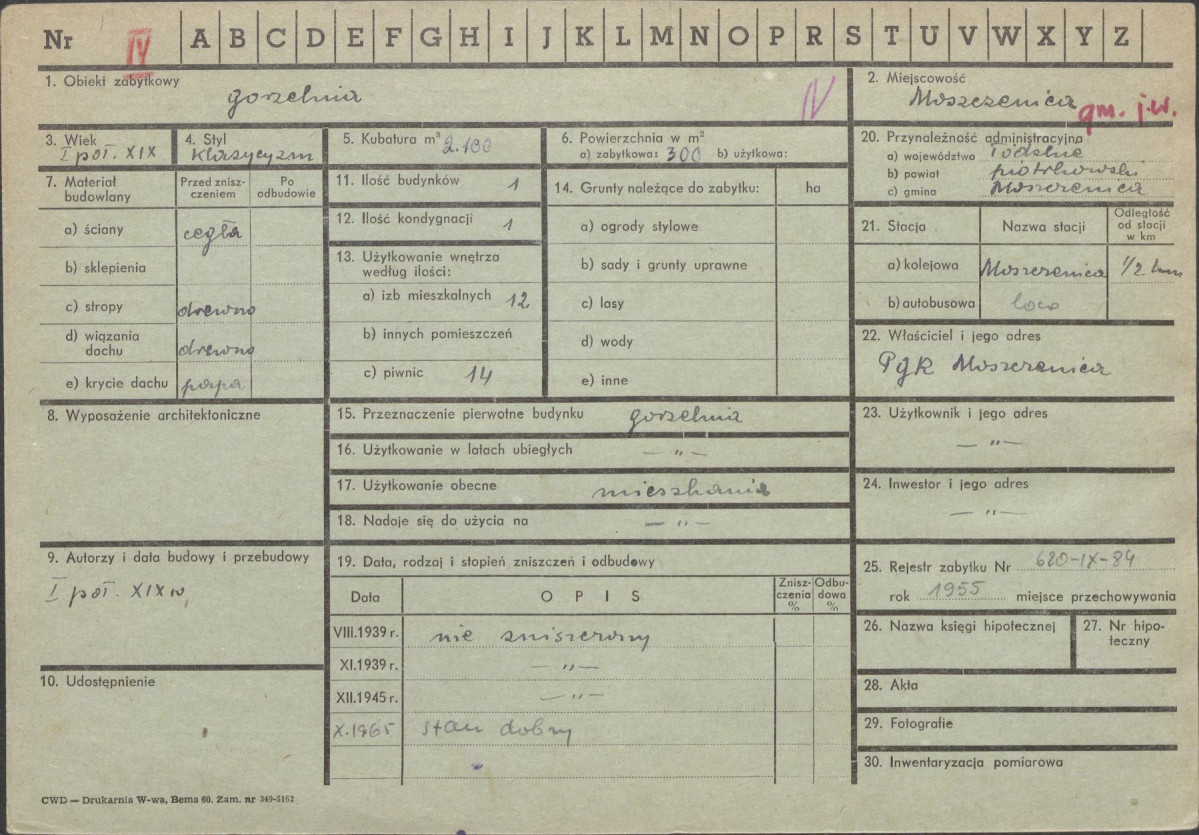 Nr IV A B C D E F G H I J K L M N O P R S T U V W X Y Z
1. Obiekt zabytkowy
gorzelnia
N
2. Miejscowość
Moszczenica
gm. j.w.
3. Wiek
I poł. XIX
4. Styl
klasycyzm
5. Kubatura m³ 2.100
6. Powierzchnia w m²
a) zabytkowa: 300 b) użytkowa:
7. Materiał budowlany
Przed zniszczeniem
Po odbudowie
a) ściany cegła
b) sklepienia
c) stropy drewno
d) wiązania dachu drewno
e) krycie dachu papa
8. Wyposażenie architektoniczne
9. Autorzy i data budowy i przebudowy
I poł. XIX w
10. Udostępnienie
11. Ilość budynków 1
12. Ilość kondygnacji 1
13. Użytkowanie wnętrza
według ilości:
a) izb mieszkalnych 12
b) innych pomieszczeń
c) piwnic 14
14. Grunty należące do zabytku: ha
a) ogrody stylowe
b) sady i grunty uprawne
c) lasy
d) wody
e) inne
15. Przeznaczenie pierwotne budynku gorzelnia
16. Użytkowanie w latach ubiegłych — „ —
17. Użytkowanie obecne mieszkania
18. Nadaje się do użycia na — „ —
19. Data, rodzaj i stopień zniszczeń i odbudowy
Data OPIS Zniszczenia % Odbudowa %
VIII.1939 r. nie zniszczony
XI.1939 r. — „ —
XII.1945 r. — „ —
X.1965 stan dobry
20. Przynależność administracyjna
a) województwo łódzkie
b) powiat piotrkowski
c) gmina Moszczenica
21. Stacja Nazwa stacji Odległość od stacji w km
a) kolejowa Moszczenica 1/2 km
b) autobusowa loco
22. Właściciel i jego adres
PgR Moszczenica
23. Użytkownik i jego adres
— „ —
24. Inwestor i jego adres
— „ —
25. Rejestr zabytku Nr 620-IX-84
rok 1955 miejsce przechowywania
26. Nazwa księgi hipotecznej
27. Nr hipoteczny
28. Akta
29. Fotografie
30. Inwentaryzacja pomiarowa
CWD — Drukarnia W-wa, Bema 60. Zam. nr 349-5162